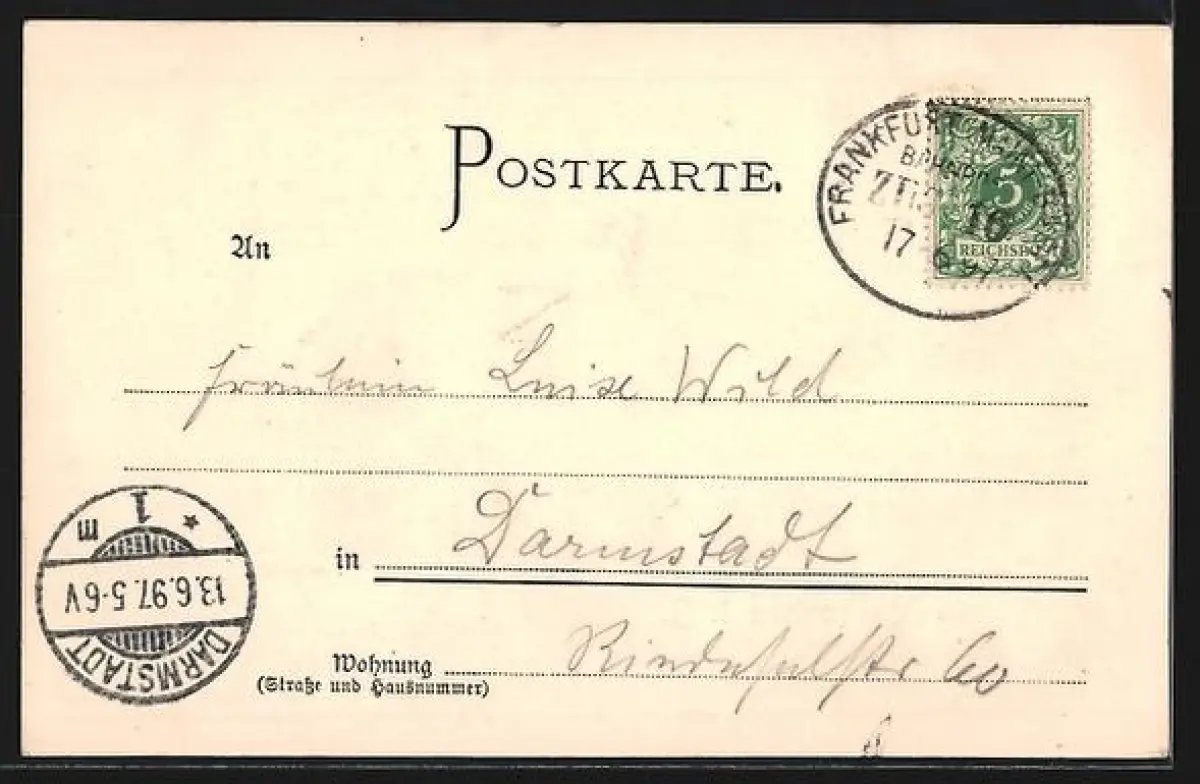 POSTKARTE.
FRANKFURT
ZUG 16
17 6 97
5
REICHSPF
An
Fräulein Luise Wild
in Darmstadt
Wohnung
(Straße und Hausnummer)
60
1
m
13.6.97.5-6V
DARMSTADT